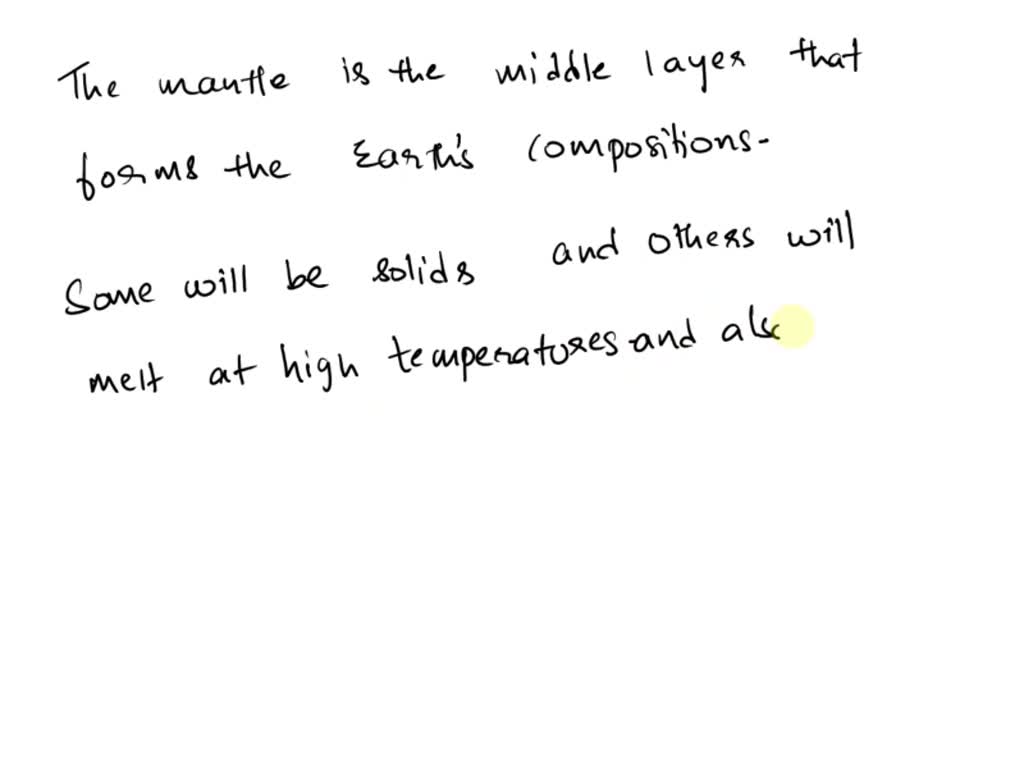 The mantle is the middle layer that
forms the Earth's compositions.
Some will be solids and others will
melt at high temperatures and als